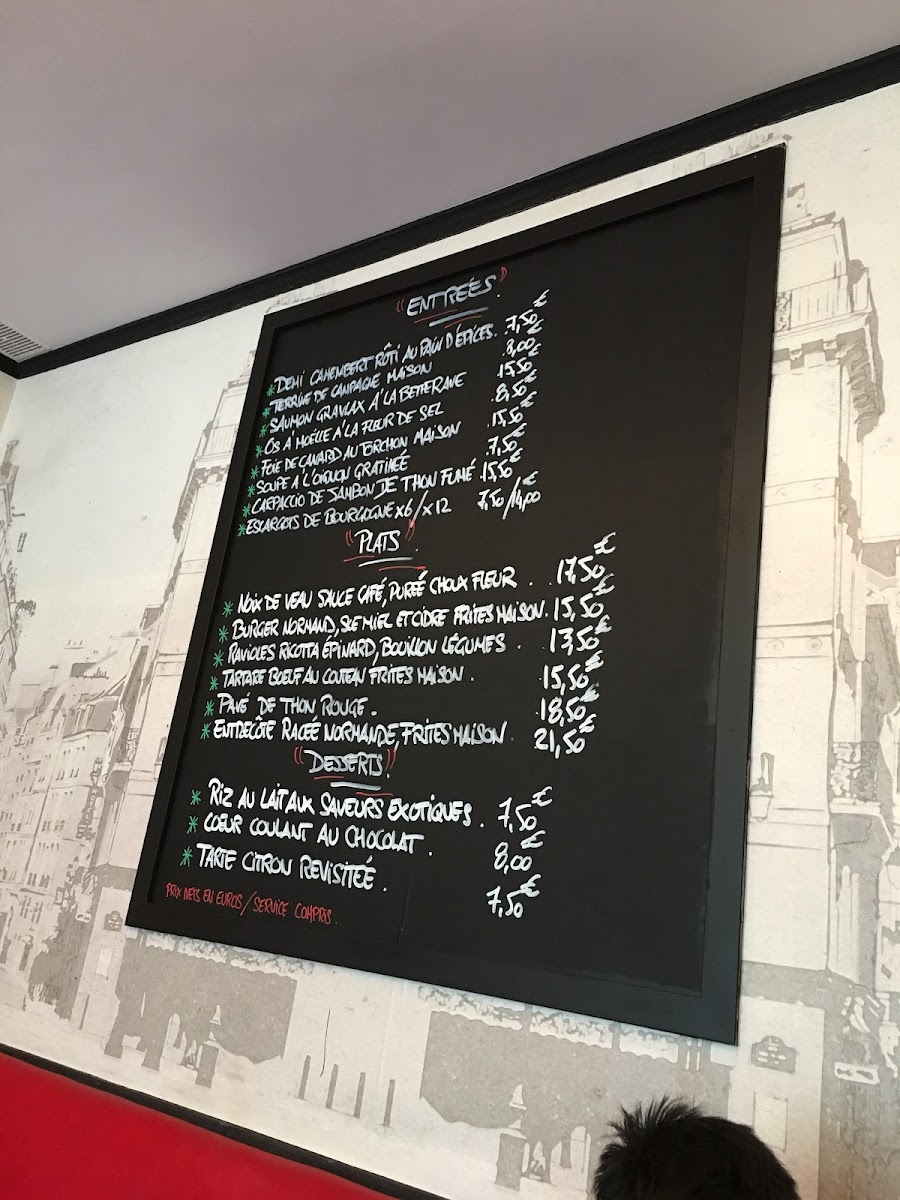 "ENTRÉES"
* DEMI CAMEMBERT RÔTI AU PAIN D'ÉPICES. 7,50€
* TERRINE DE CAMPAGNE MAISON 8,00€
* SAUMON GRAVLAX A LA BETTERAVE 15,50€
* OS A MOËLLE A LA FLEUR DE SEL 8,50€
* FOIE DE CANARD AU TORCHON MAISON 15,50€
* SOUPE A L'OIGNON GRATINÉE 7,50€
* CARPACCIO DE JAMBON DE THON FUMÉ 15,50€
* ESCARGOTS DE BOURGOGNE x6/x12 7,50/14,00€
"PLATS"
* NOIX DE VEAU SAUCE CAFÉ, PURÉÉ CHOUX FLEUR . 17,50€
* BURGER NORMAND, SCE MIEL ET CIDRE FRITES MAISON. 15,50€
* RAVIOLES RICOTTA ÉPINARD, BOUILLON LÉGUMES . 13,50€
* TARTARE BOEUF AU COUTEAU FRITES MAISON . 15,50€
* PAVÉ DE THON ROUGE . 18,50€
* ENTRECÔTE RACÉE NORMANDE, FRITES MAISON 21,50€
"DESSERTS"
* RIZ AU LAIT AUX SAVEURS EXOTIQUES . 7,50€
* COEUR COULANT AU CHOCOLAT . 8,00€
* TARTE CITRON REVISITÉÉ . 7,50€
PRIX NETS EN EUROS/SERVICE COMPRIS.